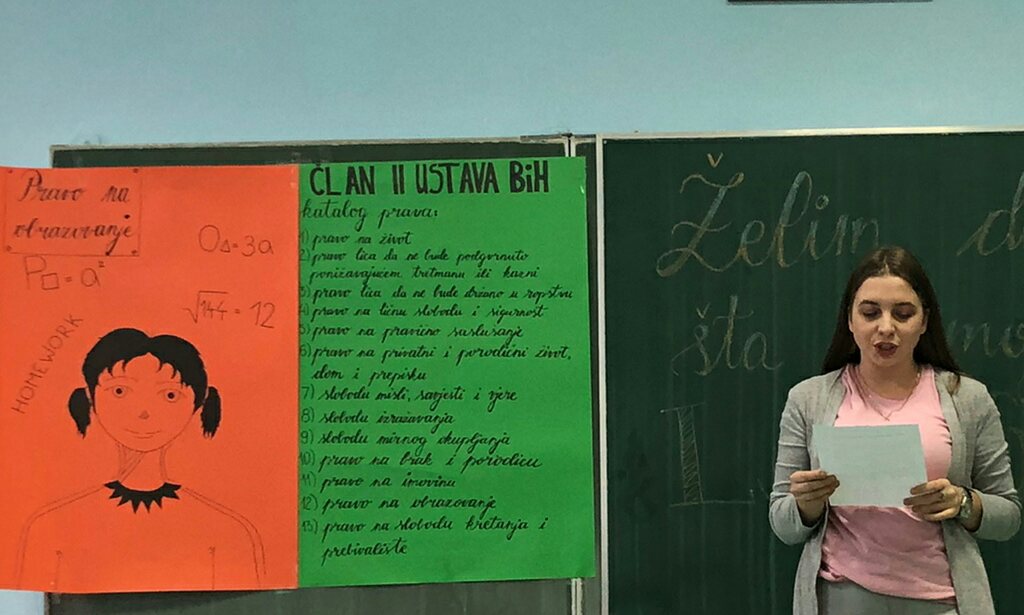 Pravo na
obrazovanje
P□ = a²
O△ = 3a
√144 = 12
HOMEWORK
ČLAN II USTAVA BiH
katalog prava:
1) pravo na život
2) pravo lica da ne bude podgvrnuto
ponižavajućem tretmanu ili kazni
3) pravo lica da ne bude držano u ropstvu
4) pravo na ličnu slobodu i sigurnost
5) pravo na pravično saslušanje
6) pravo na privatni i porodični život,
dom i prepisku
7) slobodu misli, savjesti i vjere
8) slobodu izražavanja
9) slobodu mirnog okupljanja
10) pravo na brak i porodicu
11) pravo na imovinu
12) pravo na obrazovanje
13) pravo na slobodu kretanja i
prebivalište
Želim d
šta